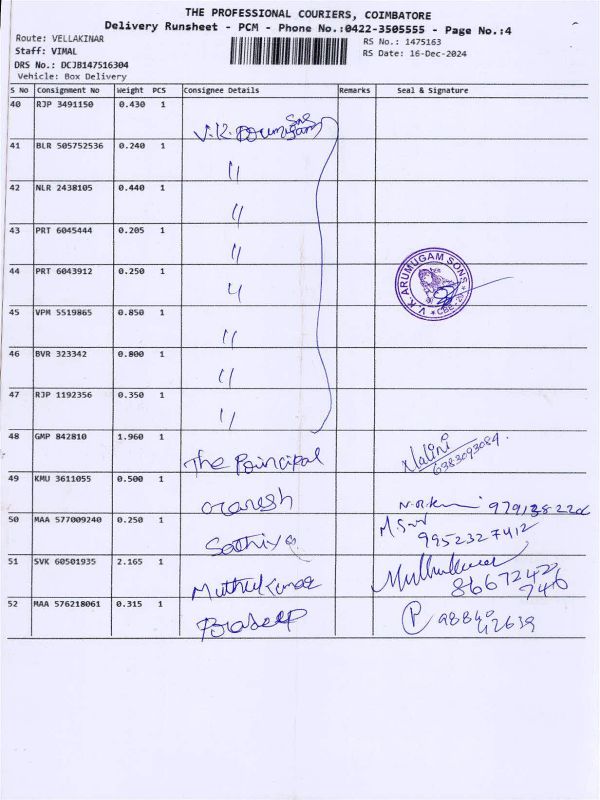 THE PROFESSIONAL COURIERS, COIMBATORE
Delivery Runsheet - PCM - Phone No.:0422-3505555 - Page No.:4
Route: VELLAKINAR
RS No.: 1475163
Staff: VIMAL
RS Date: 16-Dec-2024
DRS No.: DCJB147516304
Vehicle: Box Delivery
S No Consignment No Weight PCS Consignee Details Remarks Seal & Signature
40 RJP 3491150 0.430 1 V.K. Sons
41 BLR 505752536 0.240 1 "
42 NLR 2438105 0.440 1 "
43 PRT 6045444 0.205 1 "
44 PRT 6043912 0.250 1 "
V. K. ARUMUGAM SONS
* CBE-29 *
45 VPM 5519865 0.850 1 "
46 BVR 323342 0.800 1 "
47 RJP 1192356 0.350 1 "
48 GMP 842810 1.960 1 The Principal Nalini
6383093084.
49 KMU 3611055 0.500 1
50 MAA 577009240 0.250 1 Sathiya 9952327412
51 SVK 60501935 2.165 1 Muthukumar Muthukumar
8667242
746
52 MAA 576218061 0.315 1 Pradeep P 98840
42639